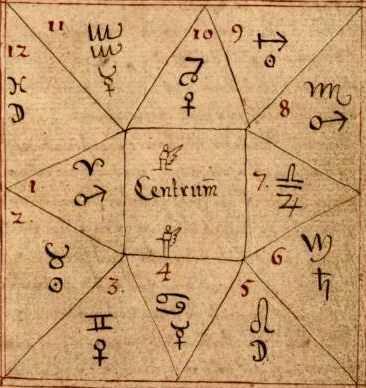 11 ♒ ☿
10 ♑ ♀
9 ♐ ☉
12 ♓ ☽
8 ♏ ♂
1 ♈ ♂
Centrum
7. ♎ ♃
2. ♉ ☉
6 ♍ ♄
3 ♊ ♀
4 ♋ ☿
5 ♌ ☽